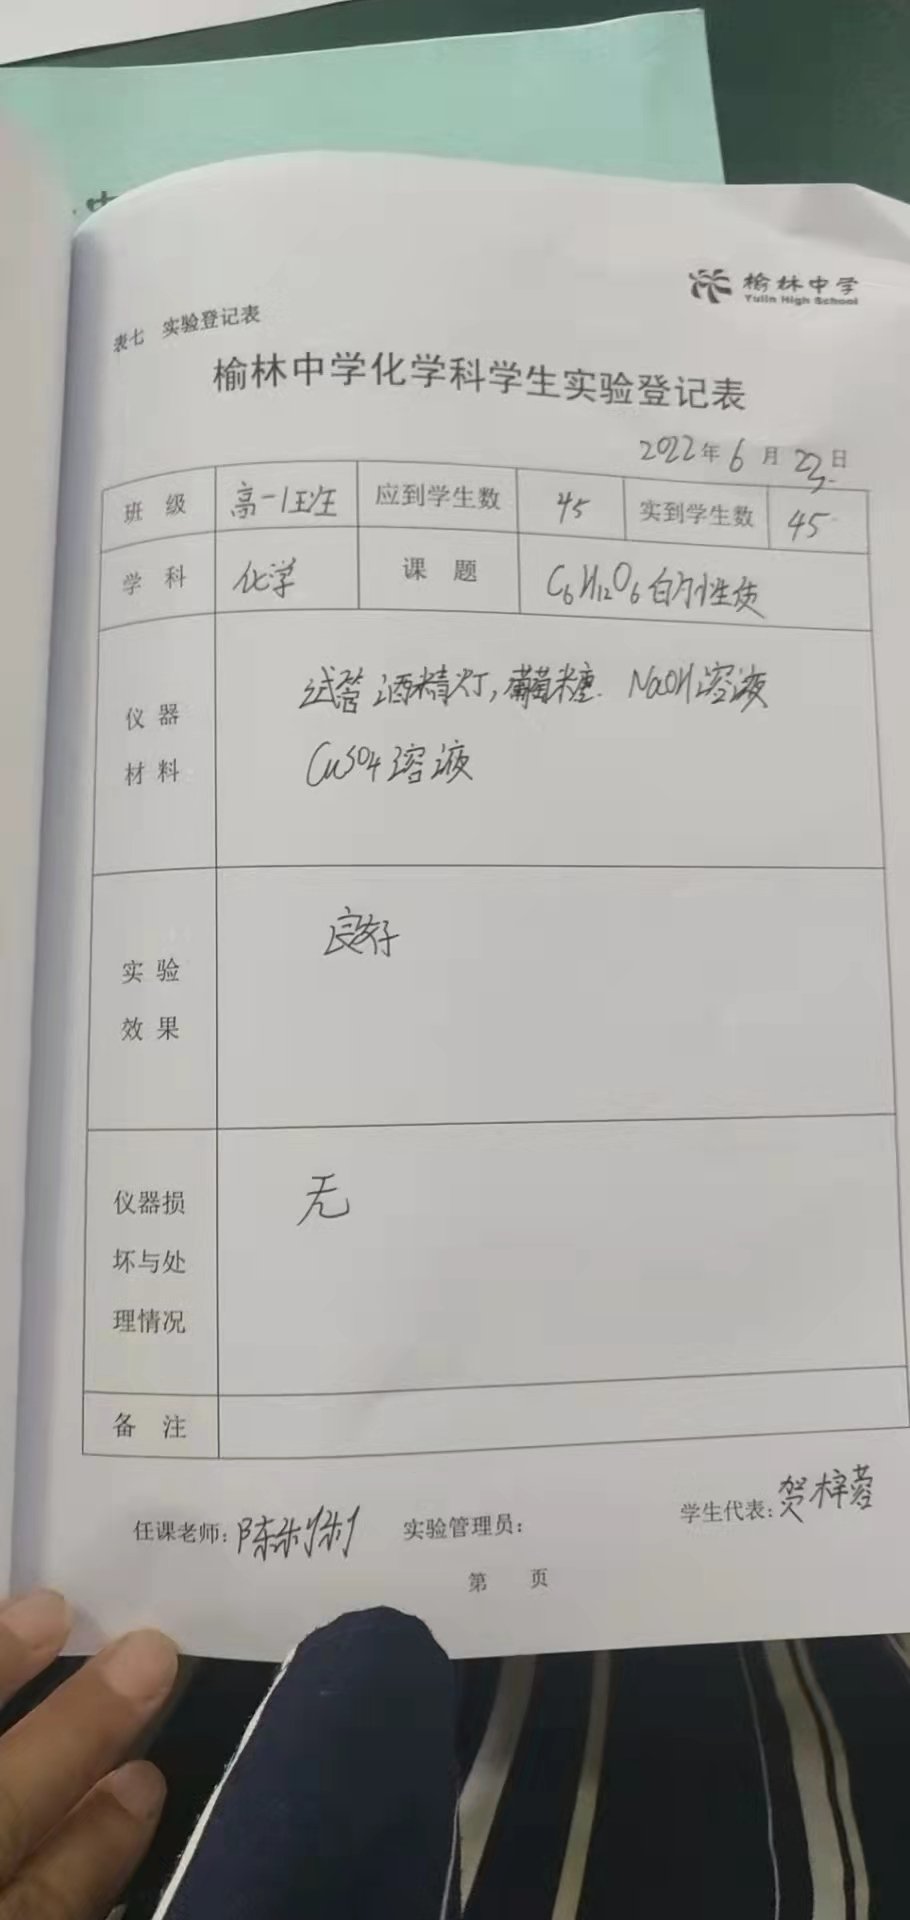 榆林中学
Yulin High School
表七 实验登记表
榆林中学化学科学生实验登记表
2022年6月23日
班级 高一1班 应到学生数 45 实到学生数 45
学科 化学 课题 C6H12O6的性质
仪器材料 试管 酒精灯,葡萄糖. NaOH溶液
CuSO4溶液
实验效果 良好
仪器损坏与处理情况 无
备注
任课老师: 实验管理员: 学生代表:贺梓蓉
第 页